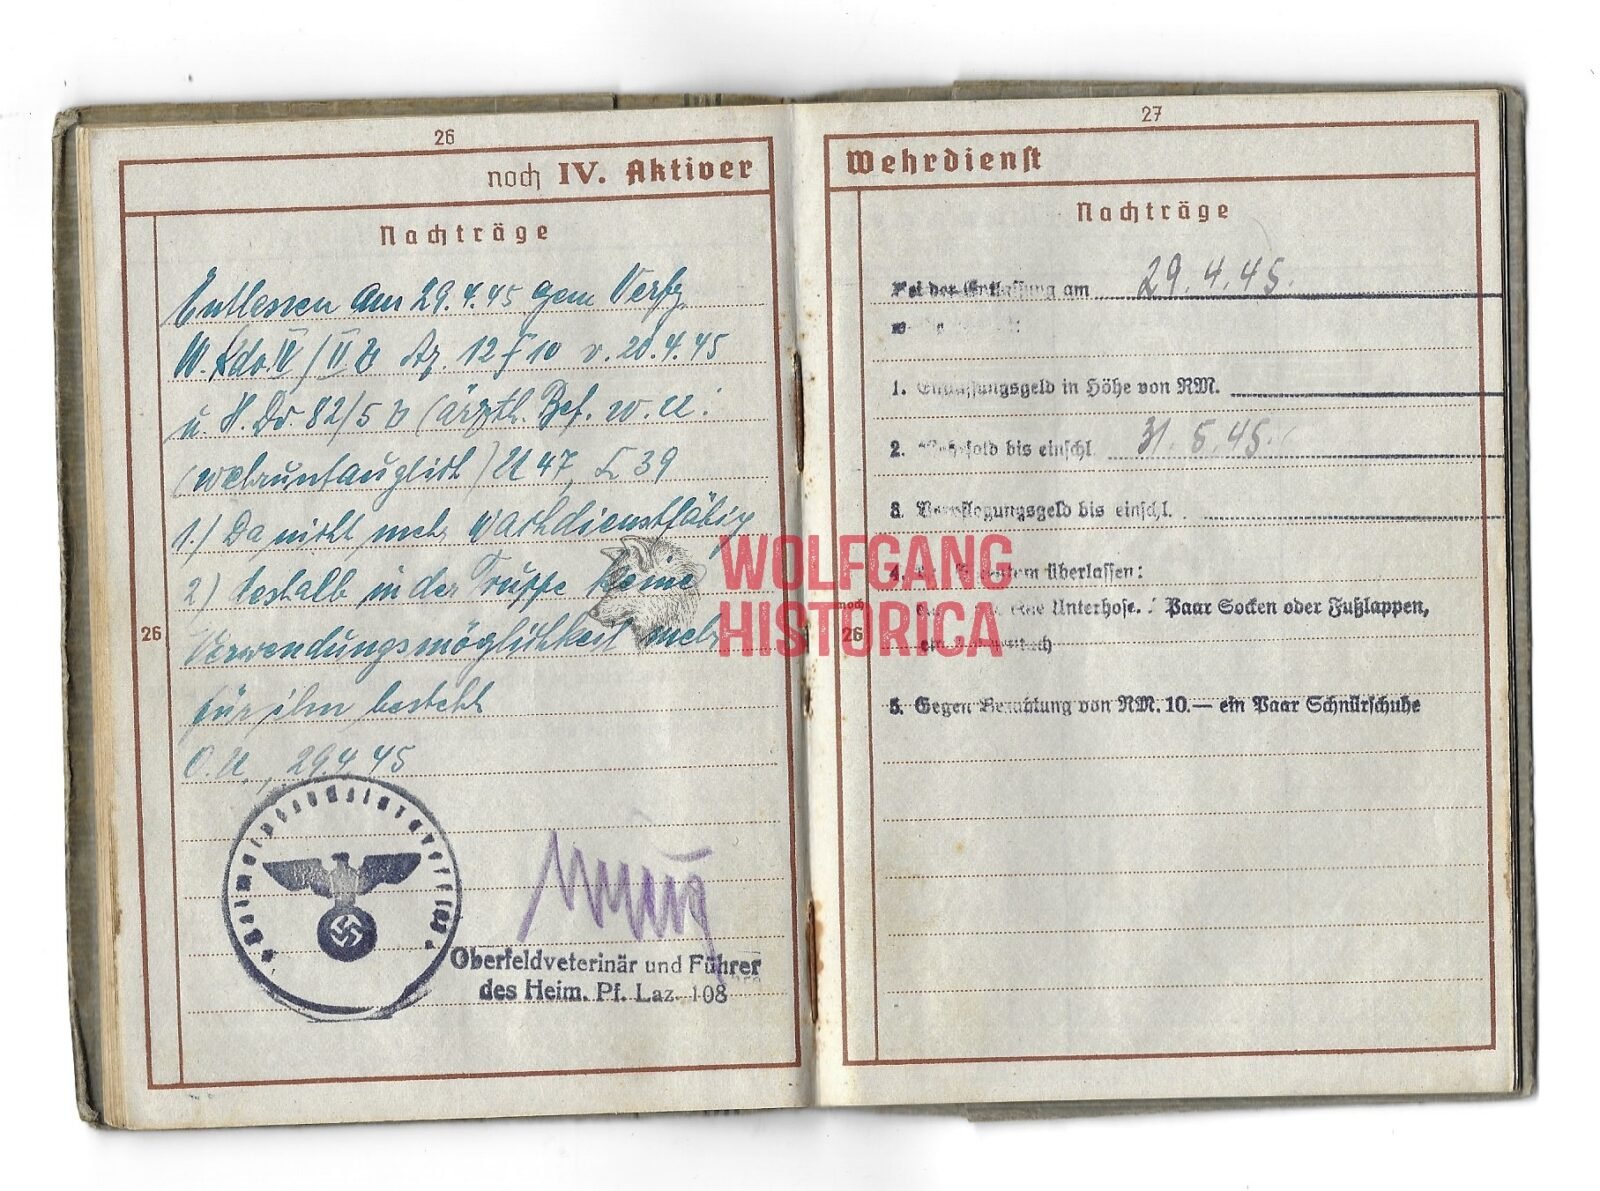 26
noch IV. Aktiver
Nachträge
Entlassen am 29.4.45 gem Verfg.
W. Kdo. IV / II b Az. 12 f 10 v. 20.4.45
u. H. Dv 82/5 b (ärztl. Bef. w. u.:
(wehruntauglich) U 47, L 39
1.) Da nicht mehr wachdienstfähig
2) deshalb in der Truppe keine
26
Verwendungsmöglichkeit mehr
für ihn besteht
O. U., 29.4.45
Oberfeldveterinär und Führer
des Heim. Pf. Laz. 108
27
Wehrdienst
Nachträge
Bei der Entlassung am 29.4.45.
1. Entlassungsgeld in Höhe von RM.
2. Wehrsold bis einschl. 31.5.45.
3. Verpflegungsgeld bis einschl.
4. überlassen:
noch
26
eine Unterhose. 1 Paar Socken oder Fußlappen,
5. Gegen Bezahlung von RM. 10.— ein Paar Schnürschuhe
WOLFGANG
HISTORICA